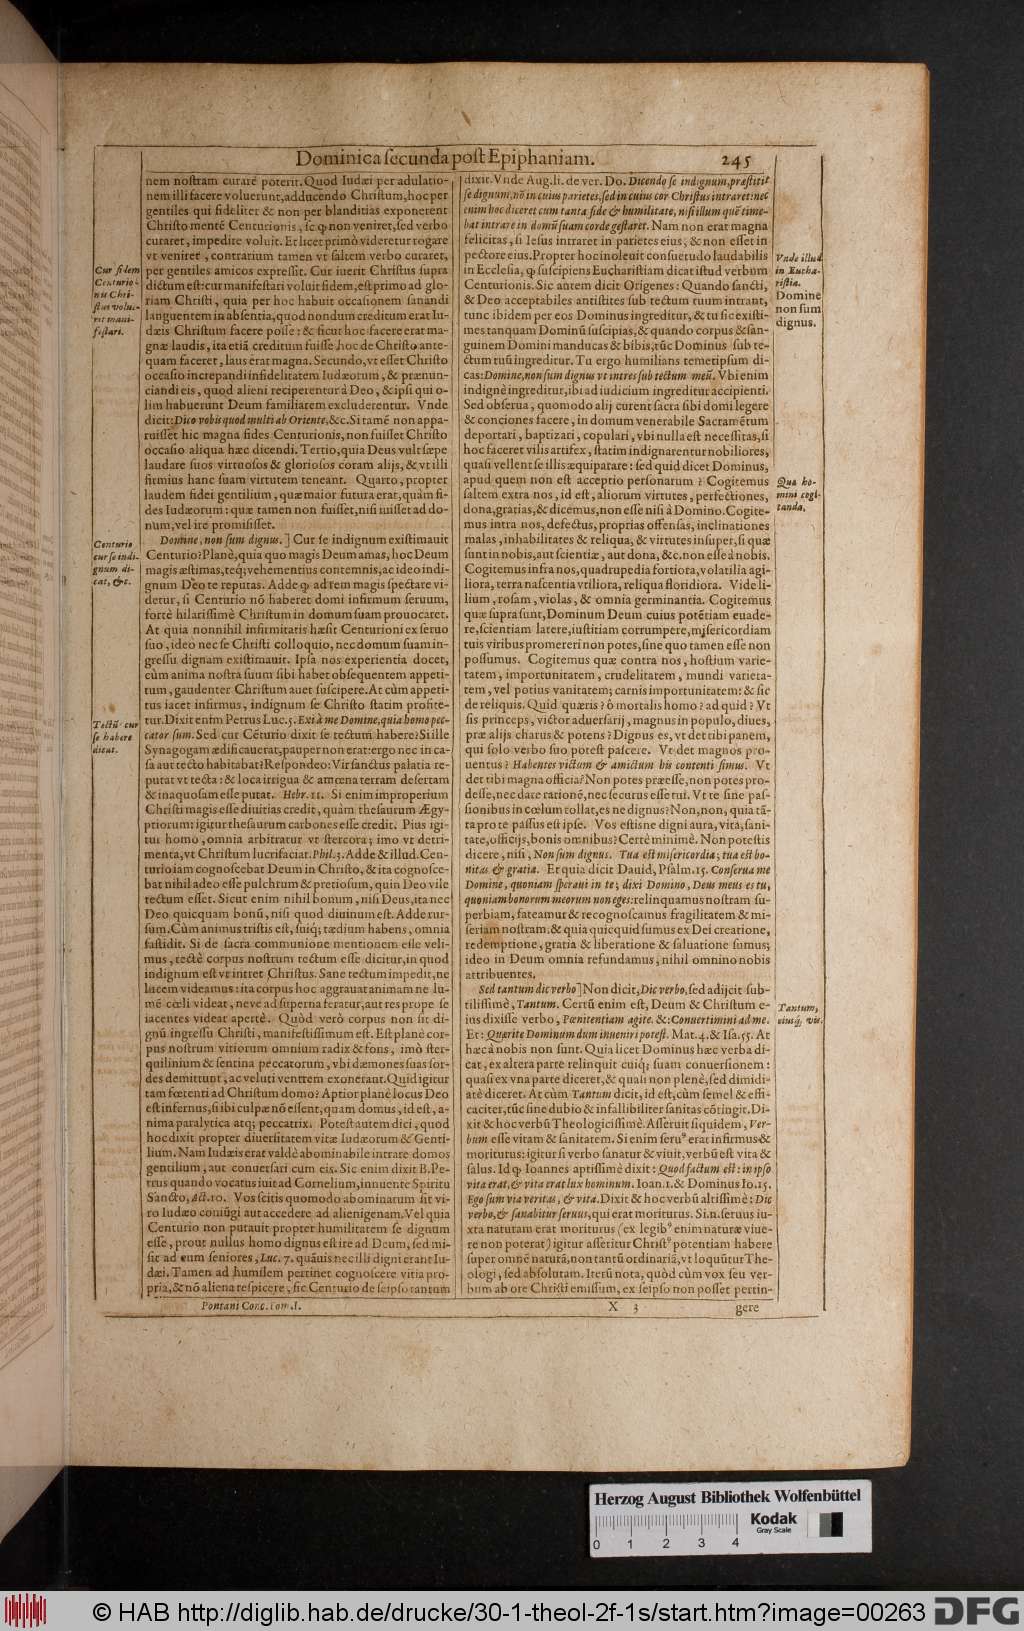 Dominica secunda post Epiphaniam. 245
nem nostram curare poterit. Quod Iudæi per adulatio-
nem illi facere voluerunt, adducendo Christum, hoc per
gentiles qui fideliter & non per blanditias exponerent
Christo mentē Centurionis, sic ꝙ non veniret, sed verbo
curaret, impedire voluit. Et licet primò videretur rogare
vt veniret, contrarium tamen vt saltem verbo curaret,
per gentiles amicos expressit. Cur iuerit Christus supra
dictum est: cur manifestari voluit fidem, est primo ad glo-
riam Christi, quia per hoc habuit occasionem sanandi
languentem in absentia, quod nondum creditum erat Iu-
dæis Christum facere posse: & sicut hoc facere erat ma-
gnæ laudis, ita etiā creditum fuisse, hoc de Christo ante-
quam faceret, laus erat magna. Secundo, vt esset Christo
occasio increpandi infidelitatem Iudæorum, & prænun-
ciandi eis, quod alieni reciperentur à Deo, & ipsi qui o-
lim habuerunt Deum familiarem excluderentur. Vnde
dicit: Dico vobis quod multi ab Oriente, &c. Si tamē non appa-
ruisset hic magna fides Centurionis, non fuisset Christo
occasio aliqua hæc dicendi. Tertio, quia Deus vult sæpe
laudare suos virtuosos & gloriosos coram alijs, & vt illi
firmius hanc suam virtutem teneant. Quarto, propter
laudem fidei gentilium, quæ maior futura erat, quàm fi-
des Iudæorum: quæ tamen non fuisset, nisi iuisset ad do-
num, vel ire promisisset.
Domine, non sum dignus.] Cur se indignum existimauit
Centurio? Planè, quia quo magis Deum amas, hoc Deum
magis æstimas, teq́; vehementius contemnis, ac ideo indi-
gnum Deo te reputas. Adde ꝙ ad rem magis spectare vi-
detur, si Centurio nō haberet domi infirmum seruum,
fortè hilarissimè Christum in domum suam prouocaret.
At quia nonnihil infirmitatis hæsit Centurioni ex seruo
suo, ideo nec se Christi colloquio, nec domum suam in-
gressu dignam existimauit. Ipsa nos experientia docet,
cùm anima nostra suum sibi habet obsequentem appeti-
tum, gaudenter Christum auet suscipere. At cùm appeti-
tus iacet infirmus, indignum se Christo statim profite-
tur. Dixit enim Petrus Luc. 5. Exi à me Domine, quia homo pec-
cator sum. Sed cur Cēturio dixit se tectum habere? Si ille
Synagogam ædificauerat, pauper non erat: ergo nec in ca-
sa aut tecto habitabat? Respondeo: Vir sanctus palatia re-
putat vt tecta: & loca irrigua & amœna terram desertam
& inaquosam esse putat. Hebr. 11. Si enim improperium
Christi magis esse diuitias credit, quàm thesaurum Ægy-
ptiorum: igitur thesaurum carbones esse credit. Pius igi-
tur homo, omnia arbitratur vt stercora; imo vt detri-
menta, vt Christum lucrifaciat. Phil. 3. Adde & illud. Cen-
turio iam cognoscebat Deum in Christo, & ita cognosce-
bat nihil adeo esse pulchrum & pretiosum, quin Deo vile
tectum esset. Sicut enim nihil bonum, nisi Deus, ita nec
Deo quicquam bonū, nisi quod diuinum est. Adde rur-
sum. Cùm animus tristis est, suiq́; tædium habens, omnia
fastidit. Si de sacra communione mentionem esse veli-
mus, tectè corpus nostrum tectum esse dicitur, in quod
indignum est vt intret Christus. Sane tectum impedit, ne
lucem videamus: ita corpus hoc aggrauat animam ne lu-
mē cœli videat, neve ad superna feratur, aut res prope se
iacentes videat apertè. Quòd verò corpus non sit di-
gnū ingressu Christi, manifestissimum est. Est planè cor-
pus nostrum vitiorum omnium radix & fons, imò ster-
quilinium & sentina peccatorum, vbi dæmones suas sor-
des demittunt, ac veluti ventrem exonerant. Quid igitur
tam fœtenti ad Christum domo? Aptior planè locus Deo
est infernus, si ibi culpæ nō essent, quam domus, id est, a-
nima paralytica atq; peccatrix. Potest autem dici, quod
hoc dixit propter diuersitatem vitæ Iudæorum & Genti-
lium. Nam Iudæis erat valdè abominabile intrare domos
gentilium, aut conuersari cum eis. Sic enim dixit B. Pe-
trus quando vocatus iuit ad Cornelium, innuente Spiritu
Sancto, Act. 10. Vos scitis quomodo abominatum sit vi-
ro Iudæo coniūgi aut accedere ad alienigenam. Vel quia
Centurio non putauit propter humilitatem se dignum
esse, prout nullus homo dignus est ire ad Deum, sed mi-
sit ad eum seniores, Luc. 7. quāuis nec illi digni erant Iu-
dæi. Tamen ad humilem pertinet cognoscere vitia pro-
pria, & nō aliena respicere, sic Centurio de seipso tantum
Cur fidem
Centurio-
nis Chri-
stus volue-
rit mani-
festari.
Centurio
cur se indi-
gnum di-
cat, &c.
Tectū cur
se habere
dicat.
dixit. Vnde Aug. li. de ver. Do. Dicendo se indignum, præstitit
se dignum, nō in cuius parietes, sed in cuius cor Christus intraret: nec
enim hoc diceret cum tanta fide & humilitate, nisi illum quē time-
bat intrare in domū suam corde gestaret. Nam non erat magna
felicitas, si Iesus intraret in parietes eius, & non esset in
pectore eius. Propter hoc inoleuit consuetudo laudabilis
in Ecclesia, ꝙ suscipiens Eucharistiam dicat istud verbum
Centurionis. Sic autem dicit Origenes: Quando sancti,
& Deo acceptabiles antistites sub tectum tuum intrant,
tunc ibidem per eos Dominus ingreditur, & tu sic existi-
mes tanquam Dominū suscipias, & quando corpus & san-
guinem Domini manducas & bibis, tūc Dominus sub te-
ctum tuū ingreditur. Tu ergo humilians temetipsum di-
cas: Domine, non sum dignus vt intres sub tectum meū. Vbi enim
indignè ingreditur, ibi ad iudicium ingreditur accipienti.
Sed obserua, quomodo alij curent sacra sibi domi legere
& conciones facere, in domum venerabile Sacramētum
deportari, baptizari, copulari, vbi nulla est necessitas, si
hoc faceret vilis artifex, statim indignarentur nobiliores,
quasi vellent se illis æquiparare: sed quid dicet Dominus,
apud quem non est acceptio personarum? Cogitemus
saltem extra nos, id est, aliorum virtutes, perfectiones,
dona, gratias, & dicemus, non esse nisi à Domino. Cogite-
mus intra nos, defectus, proprias offensas, inclinationes
malas, inhabilitates & reliqua, & virtutes insuper, si quæ
sunt in nobis, aut scientiæ, aut dona, &c. non esse à nobis.
Cogitemus infra nos, quadrupedia fortiora, volatilia agi-
liora, terra nascentia vtiliora, reliqua floridiora. Vide li-
lium, rosam, violas, & omnia germinantia. Cogitemus
quæ supra sunt, Dominum Deum cuius potētiam euade-
re, scientiam latere, iustitiam corrumpere, misericordiam
tuis viribus promereri non potes, sine quo tamen esse non
possumus. Cogitemus quæ contra nos, hostium varie-
tatem, importunitatem, crudelitatem, mundi varieta-
tem, vel potius vanitatem; carnis importunitatem: & sic
de reliquis. Quid quæris? ô mortalis homo? ad quid? Vt
sis princeps, victor aduersarij, magnus in populo, diues,
præ alijs charus & potens? Dignus es, vt det tibi panem,
qui solo verbo suo potest pascere. Vt det magnos pro-
uentus? Habentes victum & amictum his contenti simus. Vt
det tibi magna officia? Non potes præesse, non potes pro-
desse, nec dare rationē, nec securus esse tui. Vt te sine pas-
sionibus in cœlum tollat, es ne dignus? Non, non, quia tā-
ta pro te passus est ipse. Vos estisne digni aura, vita, sani-
tate, officijs, bonis omnibus? Certè minimè. Non potestis
dicere, nisi, Non sum dignus. Tua est misericordia; tua est bo-
nitas & gratia. Et quia dicit Dauid, Psalm. 15. Conserua me
Domine, quoniam speraui in te; dixi Domino, Deus meus es tu,
quoniam bonorum meorum non eges: relinquamus nostram su-
perbiam, fateamur & recognoscamus fragilitatem & mi-
seriam nostram. & quia quicquid sumus ex Dei creatione,
redemptione, gratia & liberatione & saluatione sumus;
ideo in Deum omnia refundamus, nihil omnino nobis
attribuentes.
Sed tantum dic verbo] Non dicit, Dic verbo, sed adijcit sub-
tilissimè, Tantum. Certū enim est, Deum & Christum e-
ius dixisse verbo, Pœnitentiam agite. &: Conuertimini ad me.
Et: Quærite Dominum dum inueniri potest. Mat. 4. & Isa. 55. At
hæc à nobis non sunt. Quia licet Dominus hæc verba di-
cat, ex altera parte relinquit cuiq́; suam conuersionem:
quasi ex vna parte diceret, & quasi non plenè, sed dimidi-
atè diceret. At cùm Tantum dicit, id est, cùm semel & effi-
caciter, tūc sine dubio & infallibiliter sanitas cōtingit. Di-
xit & hoc verbū Theologicissimè. Asseruit siquidem, Ver-
bum esse vitam & sanitatem. Si enim seruꝰ erat infirmus &
moriturus: igitur si verbo sanatur & viuit, verbū est vita &
salus. Id ꝙ Ioannes aptissimè dixit: Quod factum est: in ipso
vita erat, & vita erat lux hominum. Ioan. 1. & Dominus Io. 15.
Ego sum via veritas, & vita. Dixit & hoc verbū altissimè: Dic
verbo, & sanabitur seruus, qui erat moriturus. Si. n. seruus iu-
xta naturam erat moriturus (ex legibꝰ enim naturæ viue-
re non poterat) igitur asseritur Christꝰ potentiam habere
super omnē naturā, non tantū ordinariā, vt loquūtur The-
ologi, sed absolutam. Iterū nota, quòd cùm vox seu ver-
bum ab ore Christi emissum, ex seipso non posset pertin-
Vnde illud
in Eucha-
ristia.
Domine
non sum
dignus.
Qua ho-
mini cogi-
tanda.
Tantum,
eiusq́, vis.
Pontani Conc. Tom. I. X 3 gere
Herzog August Bibliothek Wolfenbüttel
Kodak
Gray Scale
0 1 2 3 4
© HAB http://diglib.hab.de/drucke/30-1-theol-2f-1s/start.htm?image=00263 DFG